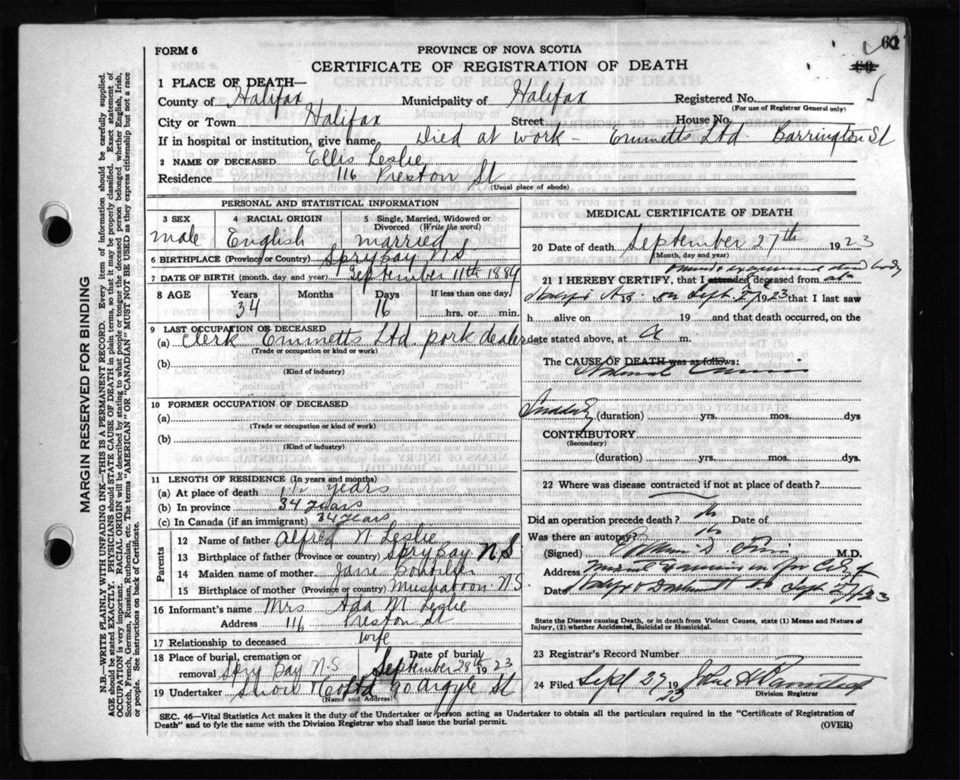 61
60
FORM 6
PROVINCE OF NOVA SCOTIA
CERTIFICATE OF REGISTRATION OF DEATH
1 PLACE OF DEATH—
County of Halifax Municipality of Halifax Registered No.
(For use of Registrar General only)
City or Town Halifax Street House No.
If in hospital or institution, give name Died at work - Emmetts Ltd. Barrington St
2 NAME OF DECEASED Ellis Leslie
Residence 116 Preston St
(Usual place of abode)
PERSONAL AND STATISTICAL INFORMATION
3 SEX 4 RACIAL ORIGIN 5 Single, Married, Widowed or Divorced (Write the word)
male English married
6 BIRTHPLACE (Province or Country) Spry bay N S
7 DATE OF BIRTH (month, day and year) September 11th 1889
8 AGE Years Months Days If less than one day,
34 16 hrs. or min.
9 LAST OCCUPATION OF DECEASED
(a) Clerk Emmetts Ltd. pork dealers
(Trade or occupation or kind of work)
(b)
(Kind of industry)
10 FORMER OCCUPATION OF DECEASED
(a)
(Trade or occupation or kind of work)
(b)
(Kind of industry)
11 LENGTH OF RESIDENCE (In years and months)
(a) At place of death years
(b) In province 34 years
(c) In Canada (if an immigrant) 34 years
Parents
12 Name of father Alfred N. Leslie
13 Birthplace of father (Province or country) Spry bay N S
14 Maiden name of mother Jane
15 Birthplace of mother (Province or country) N.S.
16 Informant's name Mrs Ada M. Leslie
Address 116 Preston St
17 Relationship to deceased wife
18 Place of burial, cremation or removal Spry Bay N.S Date of burial September 28th 1923
19 Undertaker Snow & Co Ltd 90 Argyle St
(Name and Address)
MEDICAL CERTIFICATE OF DEATH
20 Date of death September 27th 1923
(Month, day and year)
21 I HEREBY CERTIFY, that I attended deceased from
19 to on Sept 27 1923 that I last saw
h alive on 19 and that death occurred, on
date stated above, at m.
The CAUSE OF DEATH was as follows:
Natural Causes
Suddenly (duration) yrs. mos. dys
CONTRIBUTORY
(Secondary)
(duration) yrs. mos. dys.
22 Where was disease contracted if not at place of death?
Did an operation precede death? no Date of
Was there an autopsy? no
(Signed) M.D.
Address Medical Examiner for City of
Date Halifax & Dartmouth Sept 27/23
State the Disease causing Death, or in death from Violent Causes, state (1) Means and Nature of Injury, (2) whether Accidental, Suicidal or Homicidal.
23 Registrar's Record Number
24 Filed Sept 27 1923
Division Registrar
SEC. 46—Vital Statistics Act makes it the duty of the Undertaker or person acting as Undertaker to obtain all the particulars required in the "Certificate of Registration of
Death" and to fyle the same with the Division Registrar who shall issue the burial permit. (OVER)
MARGIN RESERVED FOR BINDING
N.B.—WRITE PLAINLY WITH UNFADING INK—THIS IS A PERMANENT RECORD. Every item of information should be carefully supplied.
AGE should be stated EXACTLY. PHYSICIANS should STATE CAUSE OF DEATH in plain terms, so that it may be properly classified. Exact statement of
OCCUPATION is very important. RACIAL ORIGIN will be described by stating to what people or tongue the deceased person belonged, whether English, Irish,
Scotch, French, German, Russian, Ruthenian, etc. The terms "AMERICAN" OR "CANADIAN" MUST NOT BE USED as they express citizenship but not a race
or people. See instructions on back of Certificate.